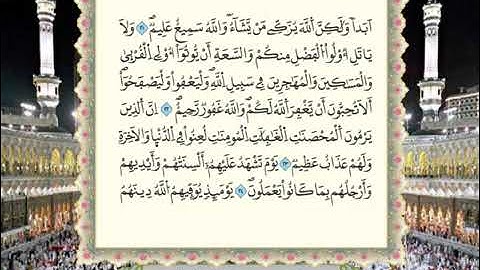 أَبَداً وَلَٰكِنَّ ٱللَّهَ يُزَكِّے مَنْ يَّشَآءُ وَٱللَّهُ سَمِيعٌ عَلِيمٌ ٢١ وَلَا
يَاتَلِ أُوْلُواْ ٱلْفَضْلِ مِنكُمْ وَٱلسَّعَةِ أَنْ يُّوتُوٓاْ أُوْلِے ٱلْقُرْب۪يٰ
وَٱلْمَسَٰكِينَ وَٱلْمُهَٰجِرِينَ فِے سَبِيلِ ٱللَّهِ وَلْيَعْفُواْ وَلْيَصْفَحُوٓاْ
أَلَا تُحِبُّونَ أَنْ يَّغْفِرَ ٱللَّهُ لَكُمْ وَٱللَّهُ غَفُورٌ رَّحِيمٌ ٢٢ إِنَّ ٱلذِينَ
يَرْمُونَ ٱلْمُحْصَنَٰتِ ٱلْغَٰفِلَٰتِ ٱلْمُومِنَٰتِ لُعِنُواْ فِے ٱلدُّنْيَا وَٱلْأٓخِرَةِ
وَلَهُمْ عَذَابٌ عَظِيمٌ ٢٣ يَوْمَ تَشْهَدُ عَلَيْهِمُۥٓ أَلْسِنَتُهُمْ وَأَيْدِيهِمْ
وَأَرْجُلُهُم بِمَا كَانُواْ يَعْمَلُونَ ٢٤ يَوْمَئِذٍ يُوَفِّيهِمُ ٱللَّهُ دِينَهُمُ